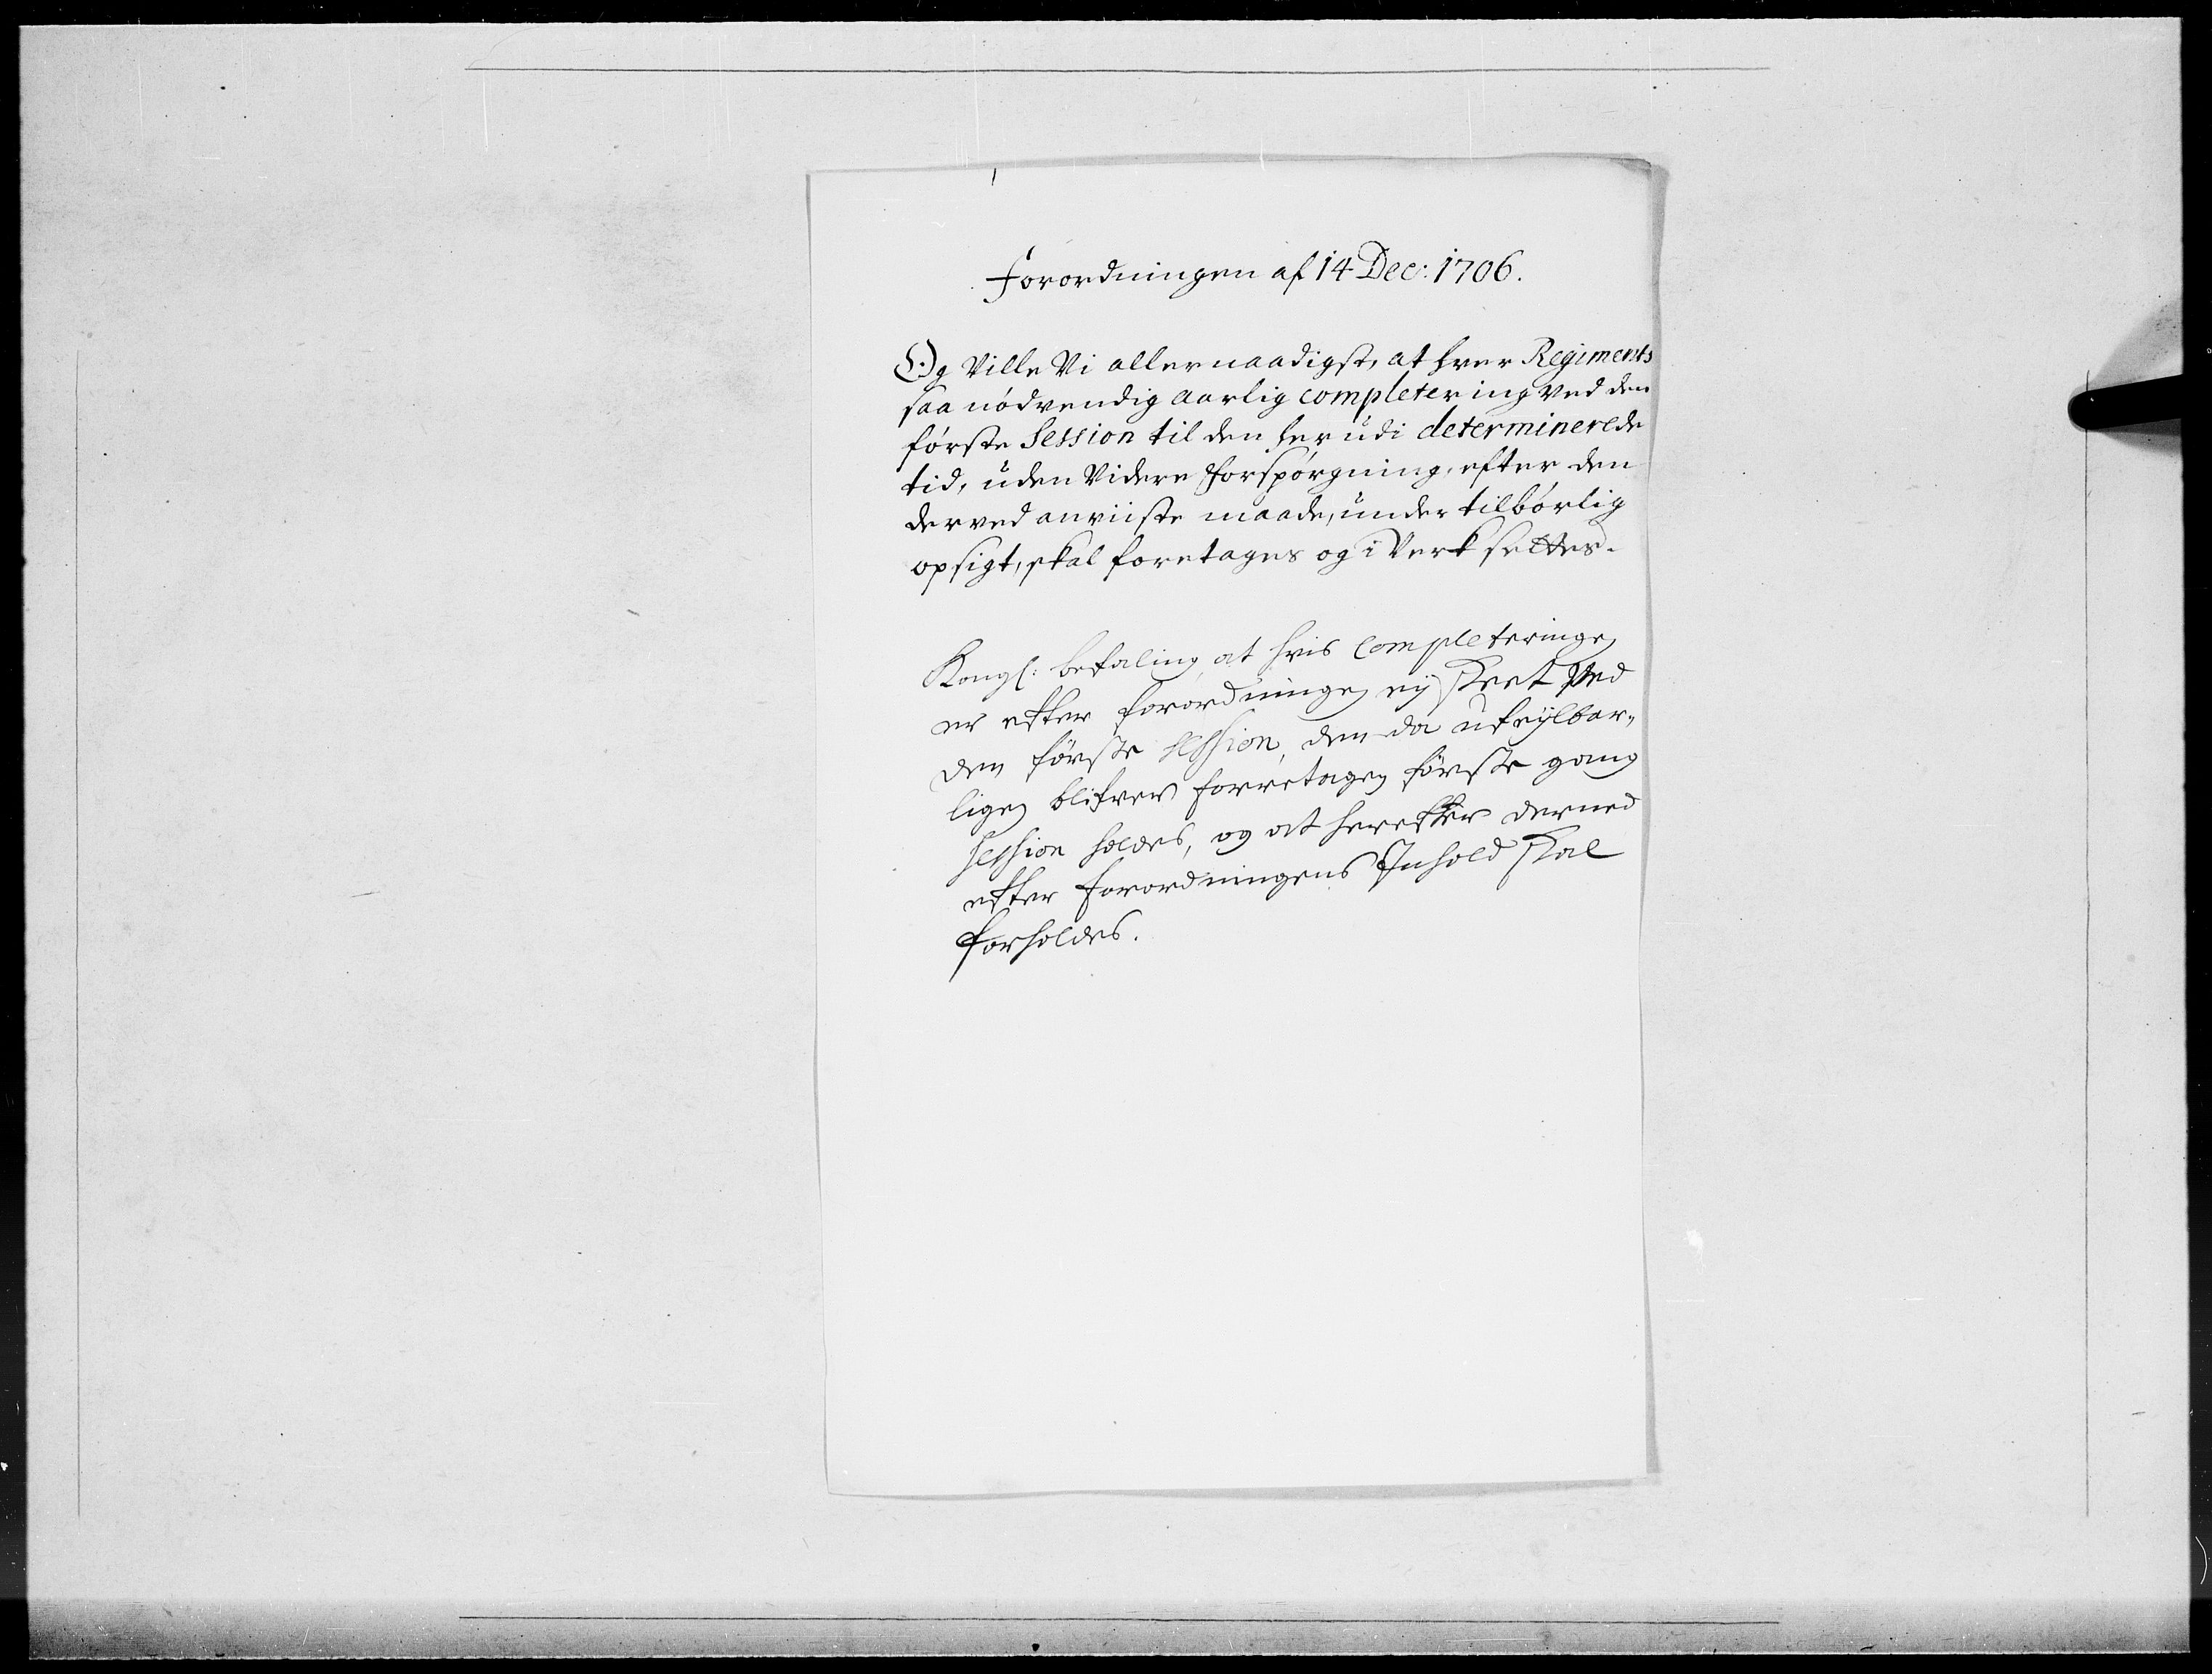 Forordningen af 14 Dec: 1706.
Og Ville Vi allernaadigst, at hver Regiments
saa nödvendig aarlig completering ved den
förste Session til den her udi determinerede
tid, uden Videre forspörgning, efter den
derved anviiste maade, under tilbörlig
opsigt, skal foretages og i Verk settes.
Kongl: befaling at hvis Completeringen
er efter forordningen ey skeet Ved
den förste session, den da ufeylbar„
ligen blifver forretagen förste gang
session holdes, og at herefter dermed
efter forordningens Inhold skal
forholdes.